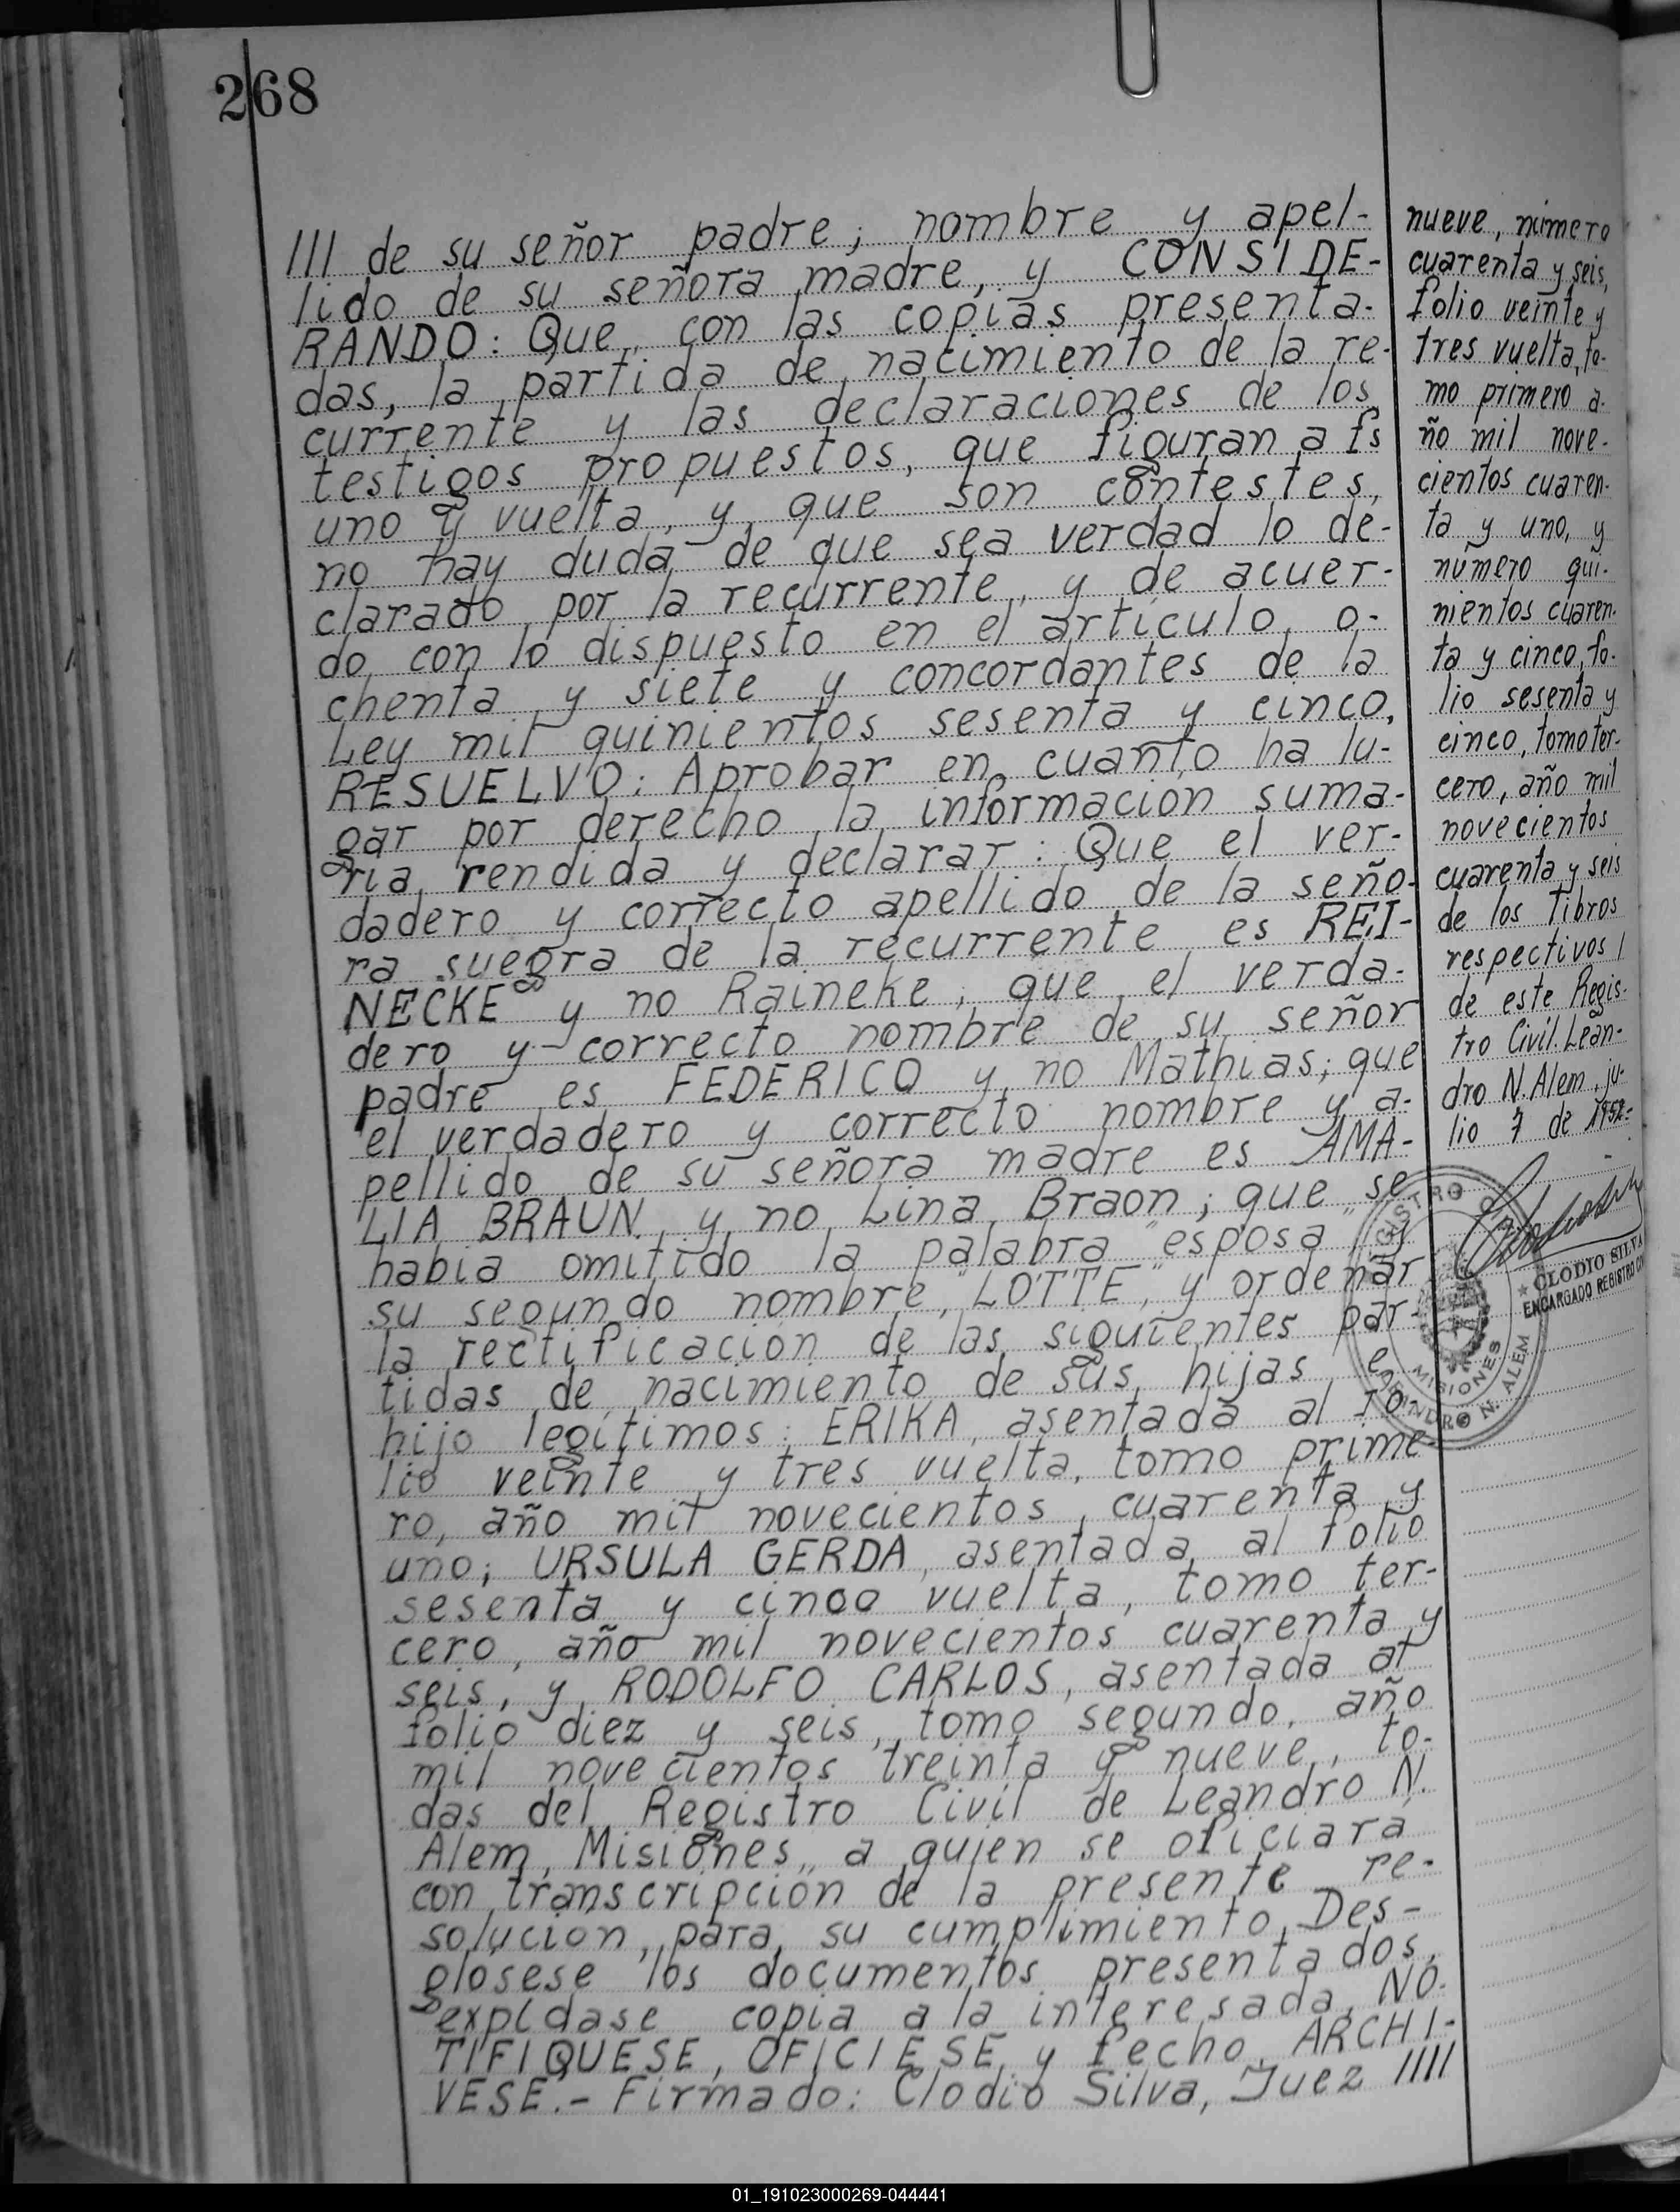 268
/// de su señor padre; nombre y apel-
lido de su señora madre, y CONSIDE-
RANDO: Que, con las copias presenta-
das, la partida de nacimiento de la re-
currente y las declaraciones de los
testigos propuestos, que figuran a fs
uno y vuelta, y, que son contestes,
no hay duda de que sea verdad lo de-
clarado por la recurrente, y de acuer-
do con lo dispuesto en el artículo o-
chenta y siete y concordantes de la
Ley mil quinientos sesenta y cinco,
RESUELVO: Aprobar en cuanto ha lu-
gar por derecho la información suma-
ria rendida y declarar: Que el ver-
dadero y correcto apellido de la seño-
ra suegra de la recurrente es REI-
NECKE y no Raineke, que el verda-
dero y correcto nombre de su señor
padre es FEDERICO y no Mathias; que
el verdadero y correcto nombre y a-
pellido de su señora madre es AMA-
LIA BRAUN, y no Lina Braon; que se
habia omitido la palabra "esposa" y
su segundo nombre, "LOTTE", y ordenar
la rectificación de las siguientes par-
tidas de nacimiento de sus hijas e
hijo legítimos: ERIKA, asentada al fo-
lio veinte y tres vuelta, tomo prime-
ro, año mil novecientos cuarenta y
uno; URSULA GERDA, asentada al folio
sesenta y cinco vuelta, tomo ter-
cero, año mil novecientos cuarenta y
seis, y RODOLFO CARLOS, asentada al
folio diez y seis, tomo segundo, año
mil novecientos treinta y nueve, to-
das del Registro Civil de Leandro N.
Alem, Misiones, a quien se oficiará
con transcripción de la presente re-
solución, para su cumplimiento, Des-
glosese los documentos presentados,
expidase copia a la interesada, NO-
TIFIQUESE, OFICIESE y fecho, ARCHI-
VESE.- Firmado: Clodio Silva, Juez ////
nueve, número
cuarenta y seis,
folio veinte y
tres vuelta, to-
mo primero a-
ño mil nove-
cientos cuaren-
ta y uno, y
número qui-
nientos cuaren-
ta y cinco, fo-
lio sesenta y
cinco, tomo ter-
cero, año mil
novecientos
cuarenta y seis
de los libros
respectivos /
de este Regis-
tro Civil. Lean-
dro N. Alem, ju-
lio 7 de 1952.-
CLODIO SILVA
ENCARGADO REGISTRO
MISIONES
LEANDRO N. ALEM
01_191023000269-044441